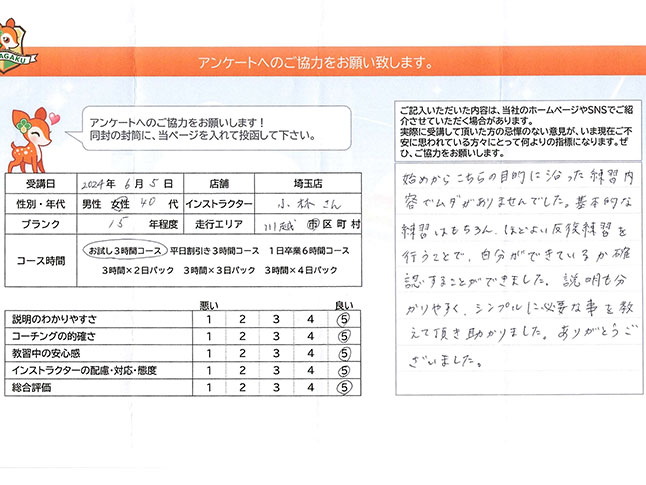 AGAKU
アンケートへのご協力をお願い致します。
アンケートへのご協力をお願いします！
同封の封筒に、当ページを入れて投函して下さい。
ご記入いただいた内容は、当社のホームページやSNSでご紹
介させていただく場合があります。
実際に受講して頂いた方の忌憚のない意見が、いま現在ご不
安に思われている方々にとって何よりの指標になります。ぜ
ひ、ご協力をお願いします。
受講日 2024年 6月 5日 店舗 埼玉店
性別・年代 男性 女性 40 代 インストラクター 小林 さん
ブランク 15 年程度 走行エリア 川越 市区町村
コース時間 お試し3時間コース 平日割引き3時間コース 1日卒業6時間コース
3時間×2日パック 3時間×3日パック 3時間×4日パック
悪い 良い
説明のわかりやすさ 1 2 3 4 5
コーチングの的確さ 1 2 3 4 5
教習中の安心感 1 2 3 4 5
インストラクターの配慮・対応・態度 1 2 3 4 5
総合評価 1 2 3 4 5
始めからこちらの目的に沿った練習内
容でムダがありませんでした。基本的な
練習はもちろん、ほどよい反復練習を
行うことで、自分ができているか確
認することができました。説明も分
かりやすく、シンプルに必要な事を教
えて頂き助かりました。ありがとうご
ざいました。